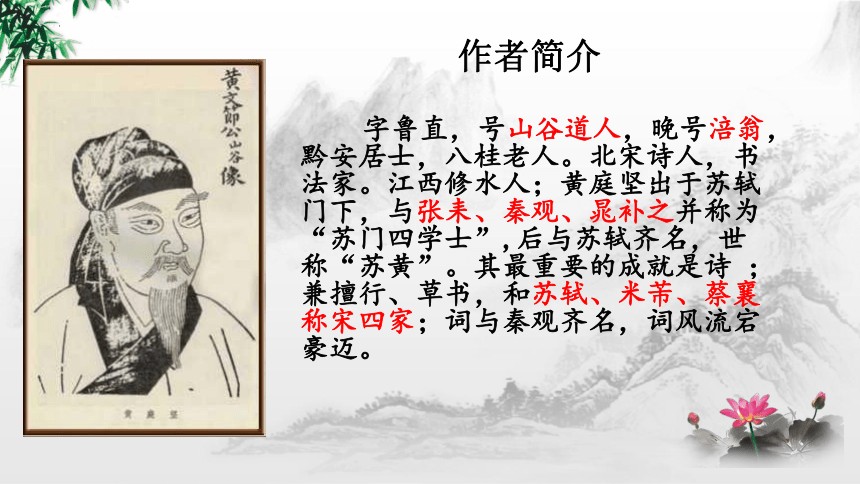 作者简介
黄文節公山谷像
黄庭坚
字鲁直，号山谷道人，晚号涪翁，
黔安居士，八桂老人。北宋诗人，书
法家。江西修水人；黄庭坚出于苏轼
门下，与张耒、秦观、晁补之并称为
“苏门四学士”,后与苏轼齐名，世
称“苏黄”。其最重要的成就是诗 ；
兼擅行、草书，和苏轼、米芾、蔡襄
称宋四家；词与秦观齐名，词风流宕
豪迈。